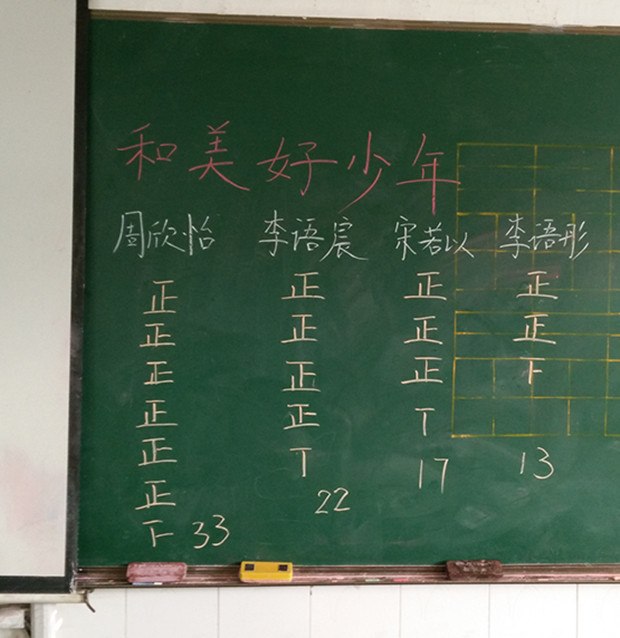 和美好少年
周欣怡 李语宸 宋若以 李语彤
正 正 正 正
正 正 正 正
正 正 正 下
正 正 丅
正 丅 17 13
正 22
下 33